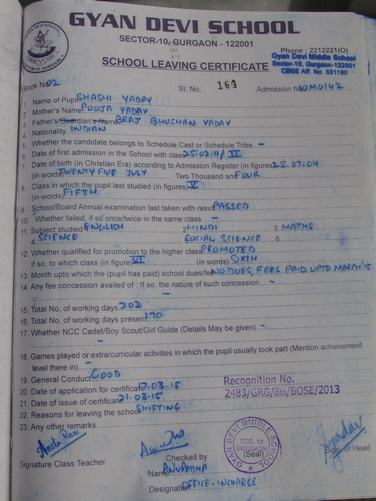 GYAN DEVI SCHOOL
SECTOR-10, GURGAON - 122001
Phone : 2212221(O)
SCHOOL LEAVING CERTIFICATE
Gyan Devi Middle School
Sector-10, Gurgaon-122001
CBSE Aff. No. 531190
Book No. 02 Sl. No. 164 Admission No 10M0142
1. Name of Pupil SHASHI YADAV
2. Mother's Name POOJA YADAV
3. Father's/Guardian's Name BRAJ BHUSHAN YADAV
4. Nationality INDIAN
5. Whether the candidate belongs to Schedule Cast or Schedule Tribe -
6. Date of first admission in the School with class 25.02.11/ II
7. Date of birth (in Christian Era) according to Admission Register (in figures) 25.07.04
(in words) TWENTY FIVE JULY Two Thousand and FOUR
8. Class in which the pupil last studied (in figures) V
(in words) FIFTH
9. School/Board Annual examination last taken with result PASSED
10. Whether failed, if so once/twice in the same class -
11. Subject studied 1 ENGLISH 2 HINDI 3. MATHS
4 SCIENCE 5 SOCIAL SCIENCE 6
12. Whether qualified for promotion to the higher class PROMOTED
if so, to which class (in figure) VI (in words) SIXTH
13. Month upto which the (pupil has paid) school dues/fee NO DUES, FEES PAID UPTO MARCH'15
14. Any fee concession availed of : If so, the nature of such concession -
15. Total No. of working days 202
16. Total No. of working days present 170
17. Whether NCC Cadet/Boy Scout/Girl Guide (Details May be given) -
18. Games played or extra/curricular activities in which the pupil usually took part (Mention achievement
level there in) -
19. General Conduct GOOD
20. Date of application for certificate 17.03.15
21. Date of issue of certificate 21.03.15
22. Reasons for leaving the school SHIFTING
23. Any other remarks
Recognition No.
2483/GRG/8th/BOSE/2013
GYAN DEVI MIDDLE SCHOOL
SEC. 10
GURGAON
(Seal)
Signature Class Teacher
Checked by
Sign of Head
Name ANURADHA
Designation OFFICE-INCHARGE